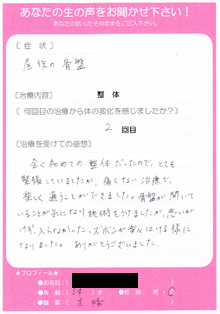 あなたの生の声をお聞かせ下さい！
あなたの思ったそのままをご記入下さい。
〔症状〕
産後の骨盤
〔治療内容〕 整体
〔何回目の治療から体の変化を感じましたか？〕
2 回目
〔治療を受けての感想〕
全く初めての整体だったので、とても
緊張していましたが、痛くない治療で、
楽しく通うことができました。骨盤が開いて
いることが気になり施術をうけましたが、思いが
けず、入らなかったズボンが楽にはける様に
なりました。ありがとうございました。
★プロフィール★
●お名前（
●年齢（ ）才 ●性別：男・女
●職業（主婦